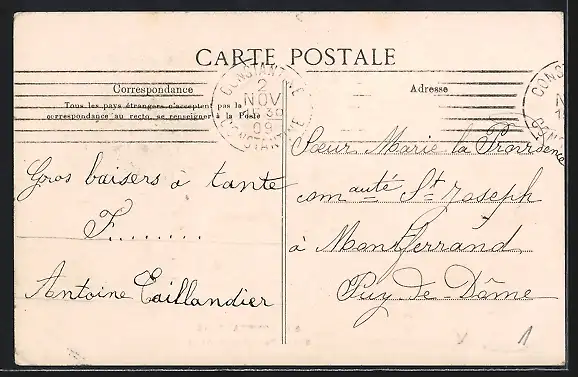 CARTE POSTALE
Correspondance
Tous les pays étrangers n'acceptent pas la
correspondance au recto, se renseigner à la Poste
CONSTANTINE
2
NOV
09
CONSTANTINE
Gros baisers à tante
F.........
Antoine Taillandier
Adresse
Sœur Marie la Providence
com auté St Joseph
à Montferrand
Puy-de-Dôme
1